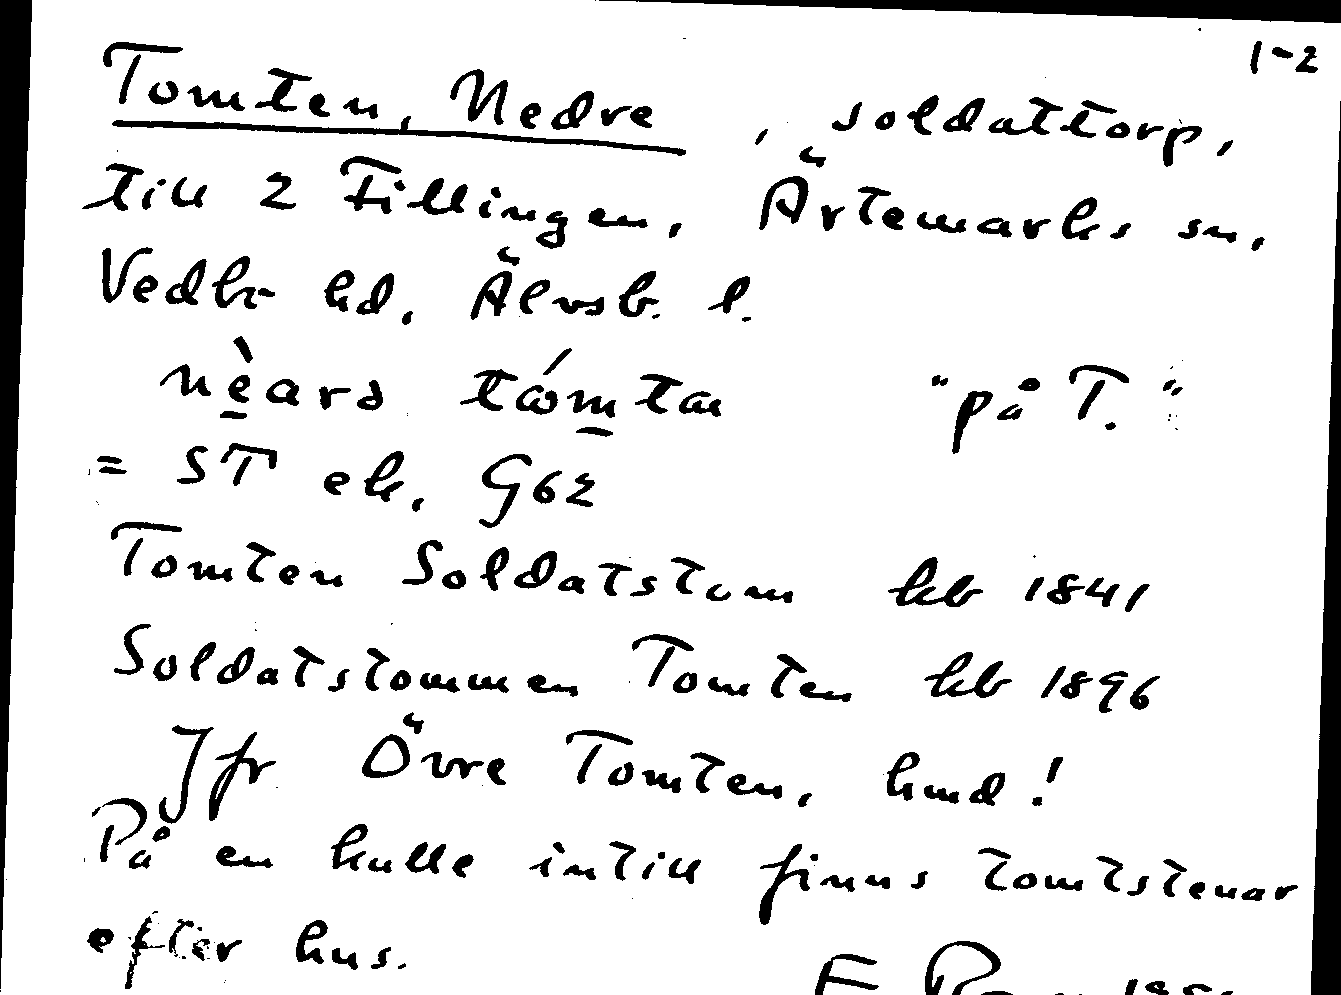 1-2
Tomten, Nedre , soldattorp,
till 2 Fillingen, Ärtemarks sn,
Vedbo hd, Älvsb. l.
nèarə tómta "på T."
= ST ek. G62
Tomten Soldatstom kb 1841
Soldatstommen Tomten kb 1896
Jfr Övre Tomten, hmd!
På en kulle intill finns tomtstenar
efter hus.